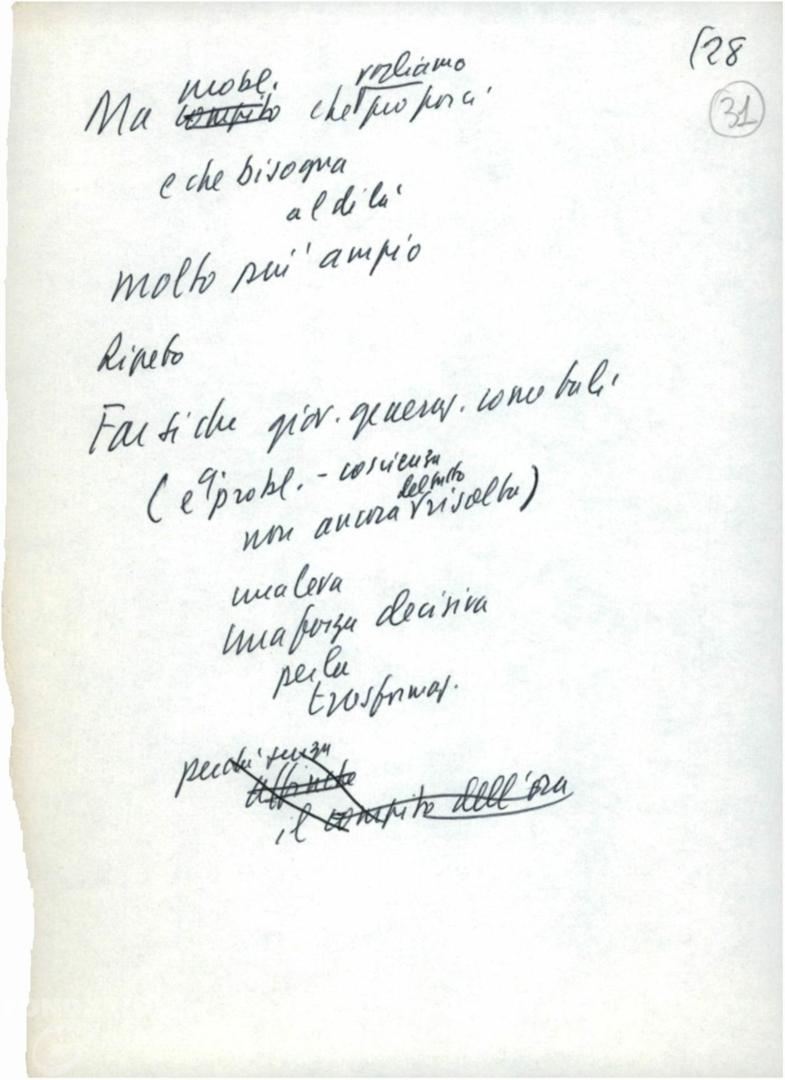 (28
31
Ma probl. vogliamo
compito che proporci
e che bisogna
al di là
molto più ampio
Ripeto
Far sì che giov. generaz. come tali
(e q. probl. - coscienza
non ancora del tutto risolta)
una leva
una forza decisiva
per la
trasformaz.
perché senza
affinché
il compito dell'ora